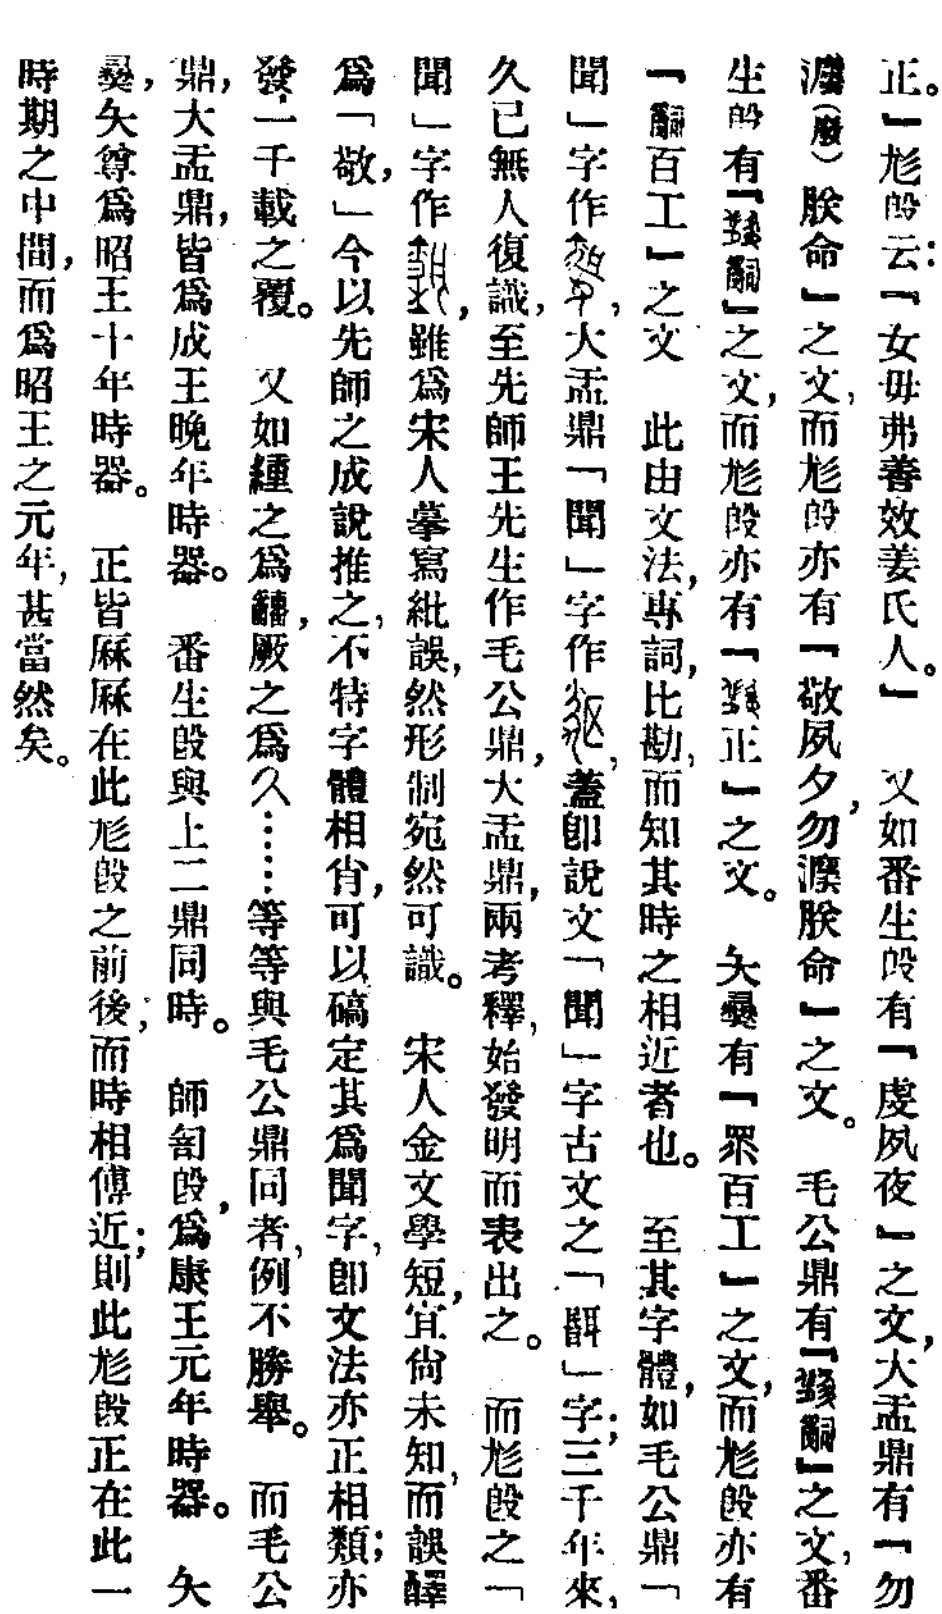 正。」尨𣪘云：「女毋弗善效姜氏人。」　又如番生𣪘有「虔夙夜」之文，大盂鼎有「勿
灋（廢）朕命」之文，而尨𣪘亦有「敬夙夕，勿灋朕命」之文。　毛公鼎有「𤔲」之文，番
生𣪘有「𤔲」之文，而尨𣪘亦有「正」之文。　矢彝有「眾百工」之文，而尨𣪘亦有
「𤔲百工」之文　此由文法，專詞，比勘，而知其時之相近者也。　至其字體，如毛公鼎「
聞」字作，大盂鼎「聞」字作，蓋卽說文「聞」字古文之「䎽」字；三千年來，
久已無人復識，至先師王先生作毛公鼎，大盂鼎，兩考釋，始發明而表出之。　而尨𣪘之「
聞」字作，雖爲宋人摹寫紕誤，然形制宛然可識。　宋人金文學短，宜尙未知，而誤釋
爲「敬，」今以先師之成說推之，不特字體相肖，可以碻定其爲聞字，卽文法亦正相類；亦
發一千載之覆。　又如緟之爲，厥之爲久……等等與毛公鼎同者，例不勝舉。　而毛公
鼎，大盂鼎，皆爲成王晚年時器。　番生𣪘與上二鼎同時。　師訇𣪘，爲康王元年時器。　矢
彝，矢尊爲昭王十年時器。　正皆厤厤在此尨𣪘之前後；而時相傅近；則此尨𣪘正在此一
時期之中間，而爲昭王之元年，甚當然矣。